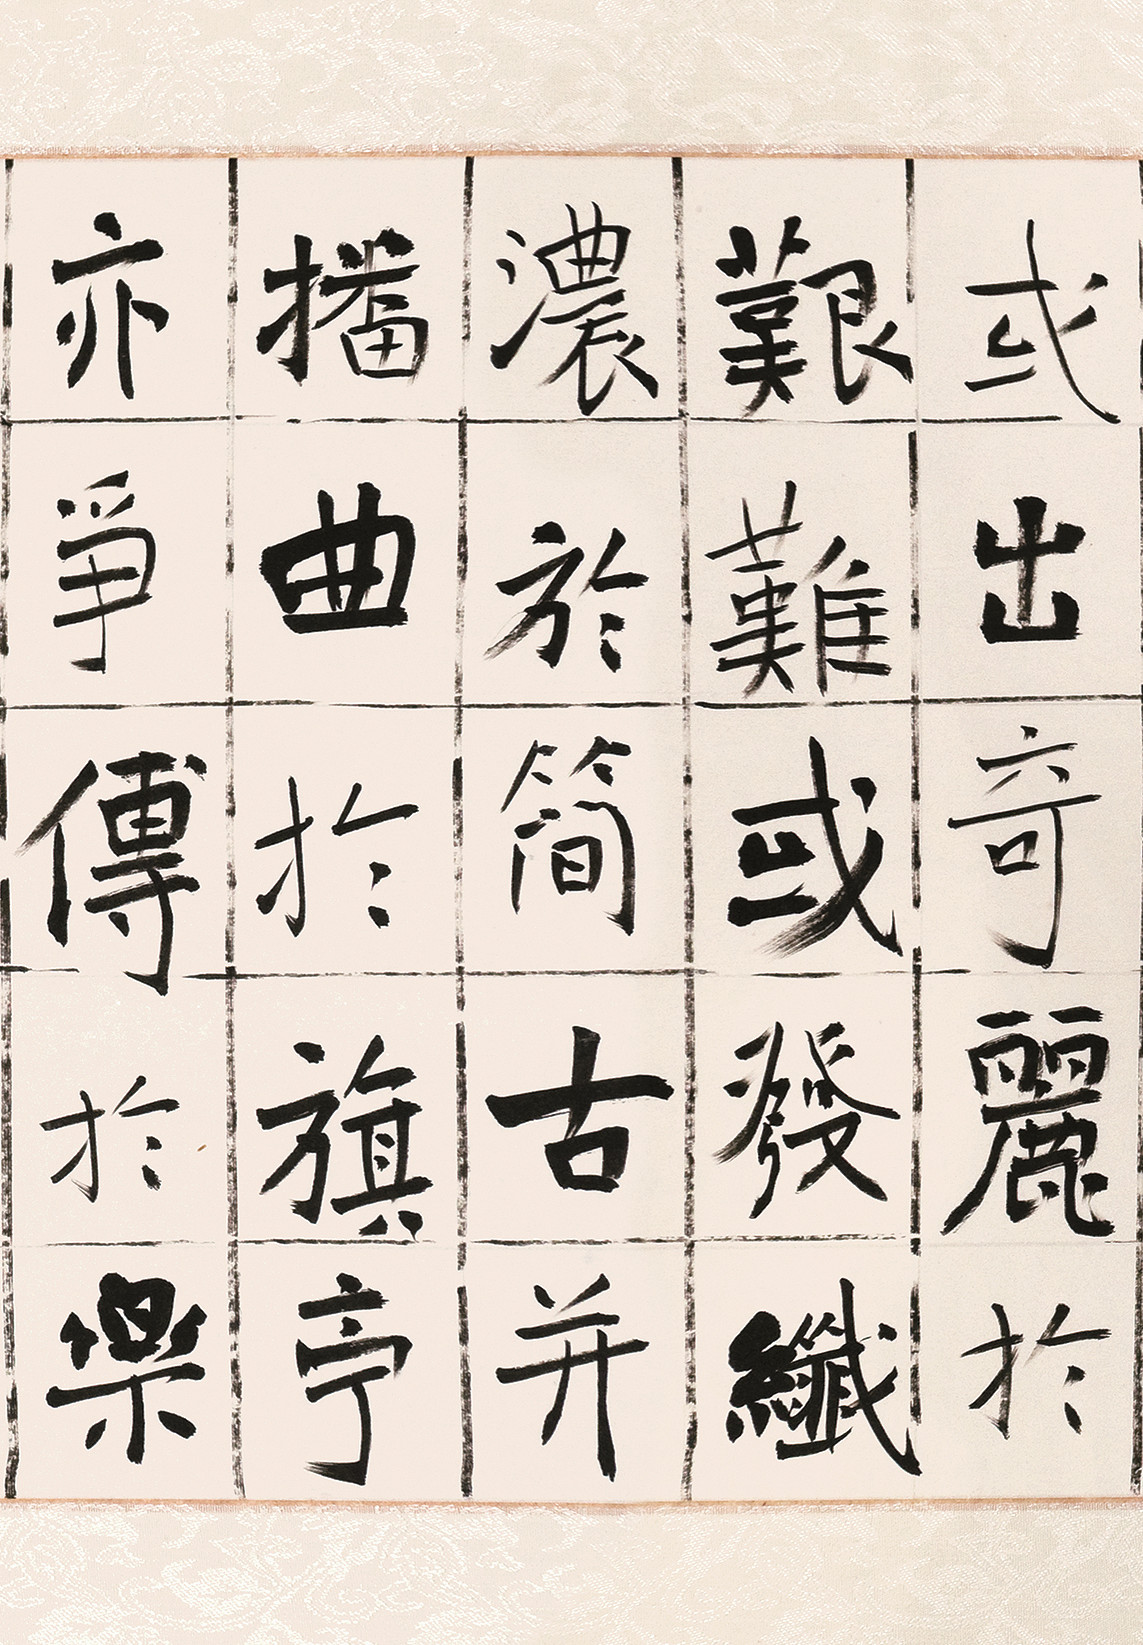 或出奇麗於
艱難或發纖
濃於簡古并
播曲於旗亭
亦爭傳於樂